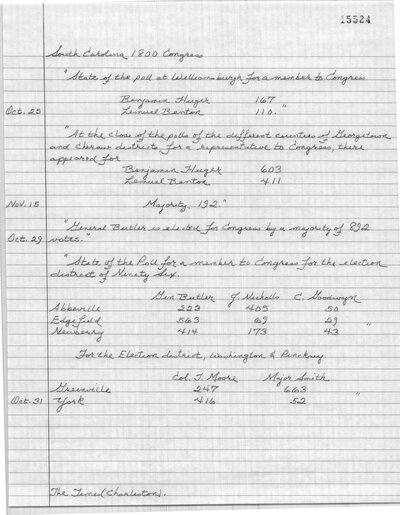 15524
South Carolina 1800 Congress
"State of the poll at Williamsburgh for a member to Congress
Benjamin Huger 167
Oct. 25 Lemuel Benton 110."
"At the close of the polls of the different counties of Georgetown
and Cheraw districts for a representative to Congress, there
appeared for
Benjamin Huger 603
Lemuel Benton 411
Nov. 15 Majority 192."
"General Butler is elected for Congress by a majority of 892
Oct. 29 votes."
"State of the Poll for a member to Congress for the election
district of Ninety Six.
Gen Butler J. Nicholls C. Goodwyn
Abbeville 223 405 50
Edgefield 563 69 29
Newberry 414 173 43 "
For the Election district, Washington & Pinckney
Col. T. Moore Major Smith
Greenville 247 663
Oct. 31 York 416 52 "
The Times (Charleston).